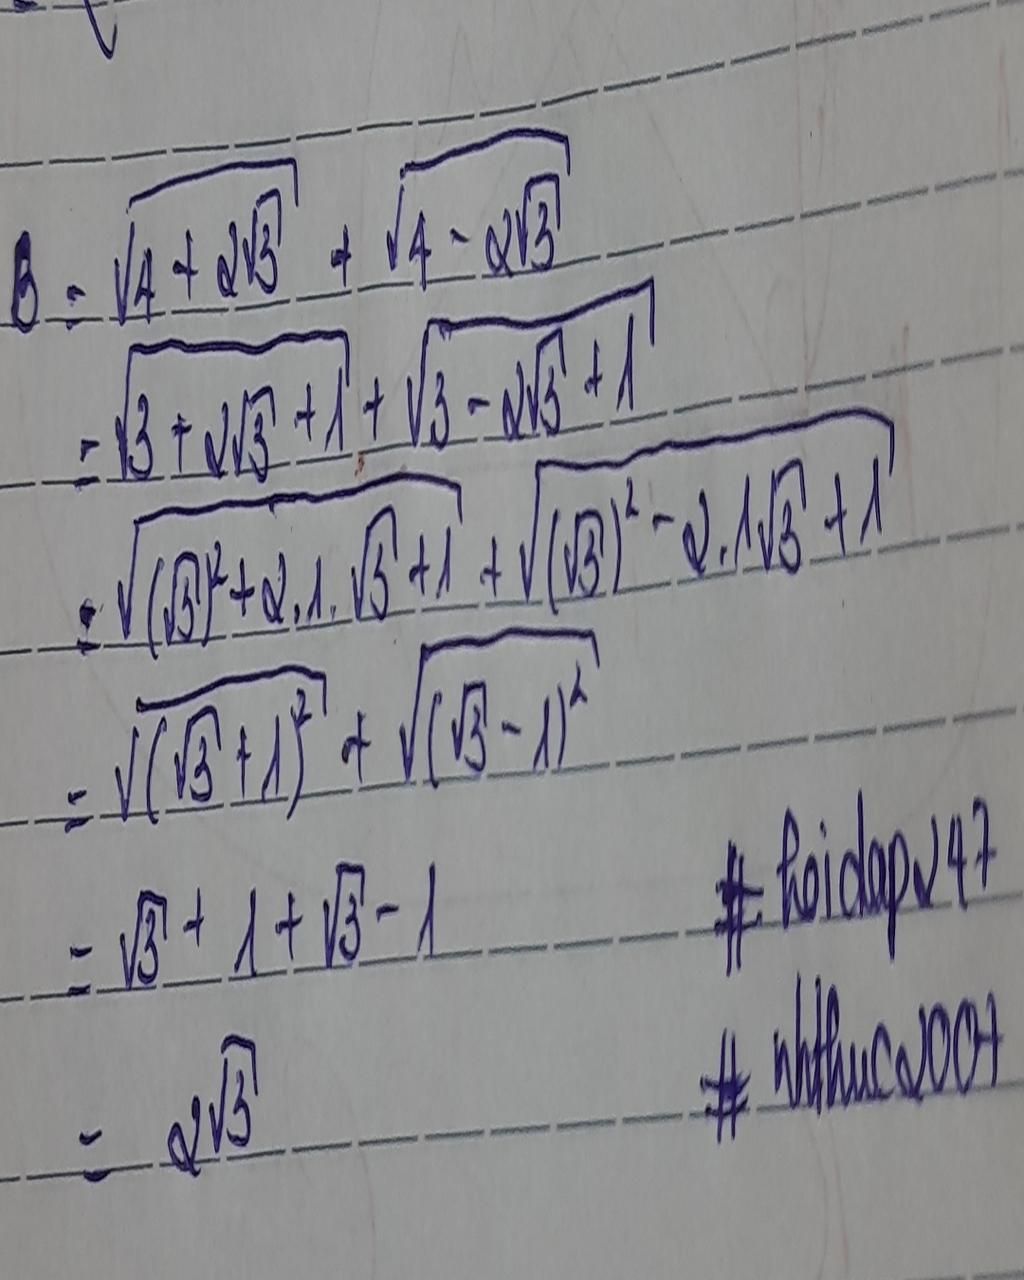 B = √(4 + 2√3) + √(4 - 2√3)
= √(3 + 2√3 + 1) + √(3 - 2√3 + 1)
= √((√3)² + 2.1.√3 + 1) + √((√3)² - 2.1√3 + 1)
= √((√3 + 1)²) + √((√3 - 1)²)
= √3 + 1 + √3 - 1
# hoidap247
= 2√3
# nhthuc2007